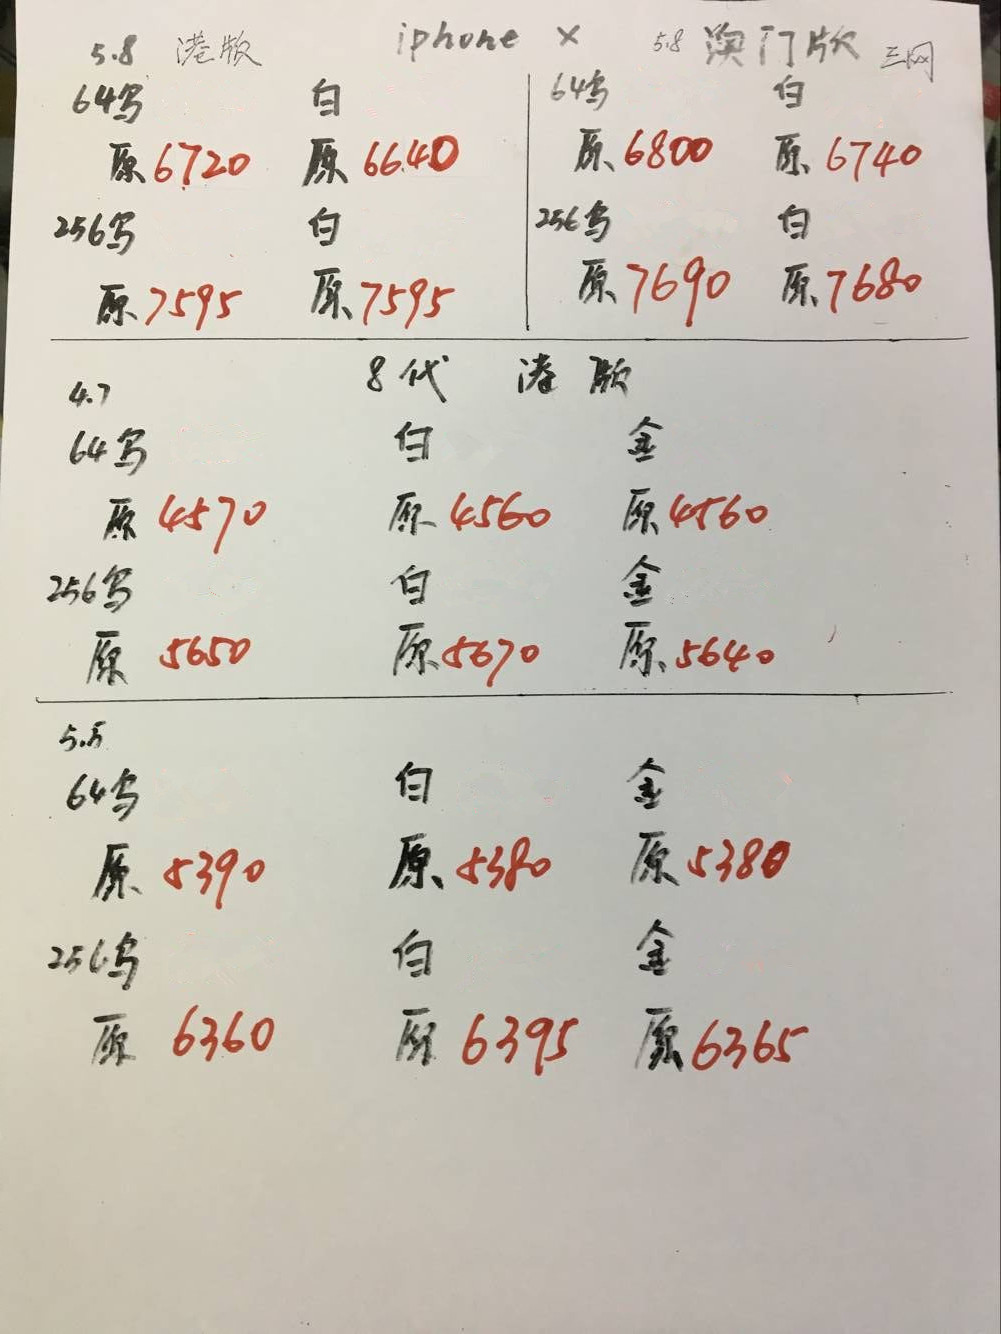 iphone X
5.8 港版
64乌 白
原6720 原6640
256乌 白
原7595 原7595
5.8 澳门版 三网
64乌 白
原6800 原6740
256乌 白
原7690 原7680
8代 港版
4.7
64乌 白 金
原4570 原4560 原4560
256乌 白 金
原5650 原5670 原5640
5.5
64乌 白 金
原5390 原5380 原5380
256乌 白 金
原6360 原6395 原6365